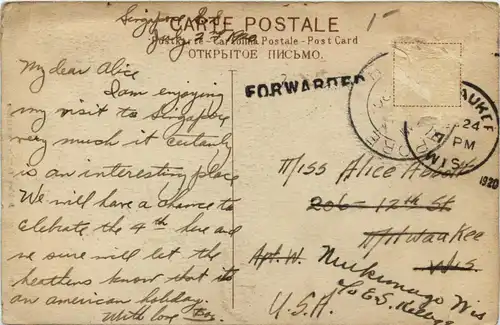 Singapore S.S.
July 2nd 1920
CARTE POSTALE
Postkarte - Cartolina Postale - Post Card
ОТКРЫТОЕ ПИСЬМО.
My dear Alice
I am enjoying
my visit to Singapore
very much it certainly
is an interesting place
We will have a chance to
celebrate the 4th here and
we sure will let the
heathens know that its
an american holiday.
With love
FORWARDED
AUKEE
24
PM
1920
WIS
Miss Alice Abbott
206- 12th St
Milwaukee
Apt. W. Wis.
Mukwonago Wis
c/o E.S. Kellogg
U.S.A.